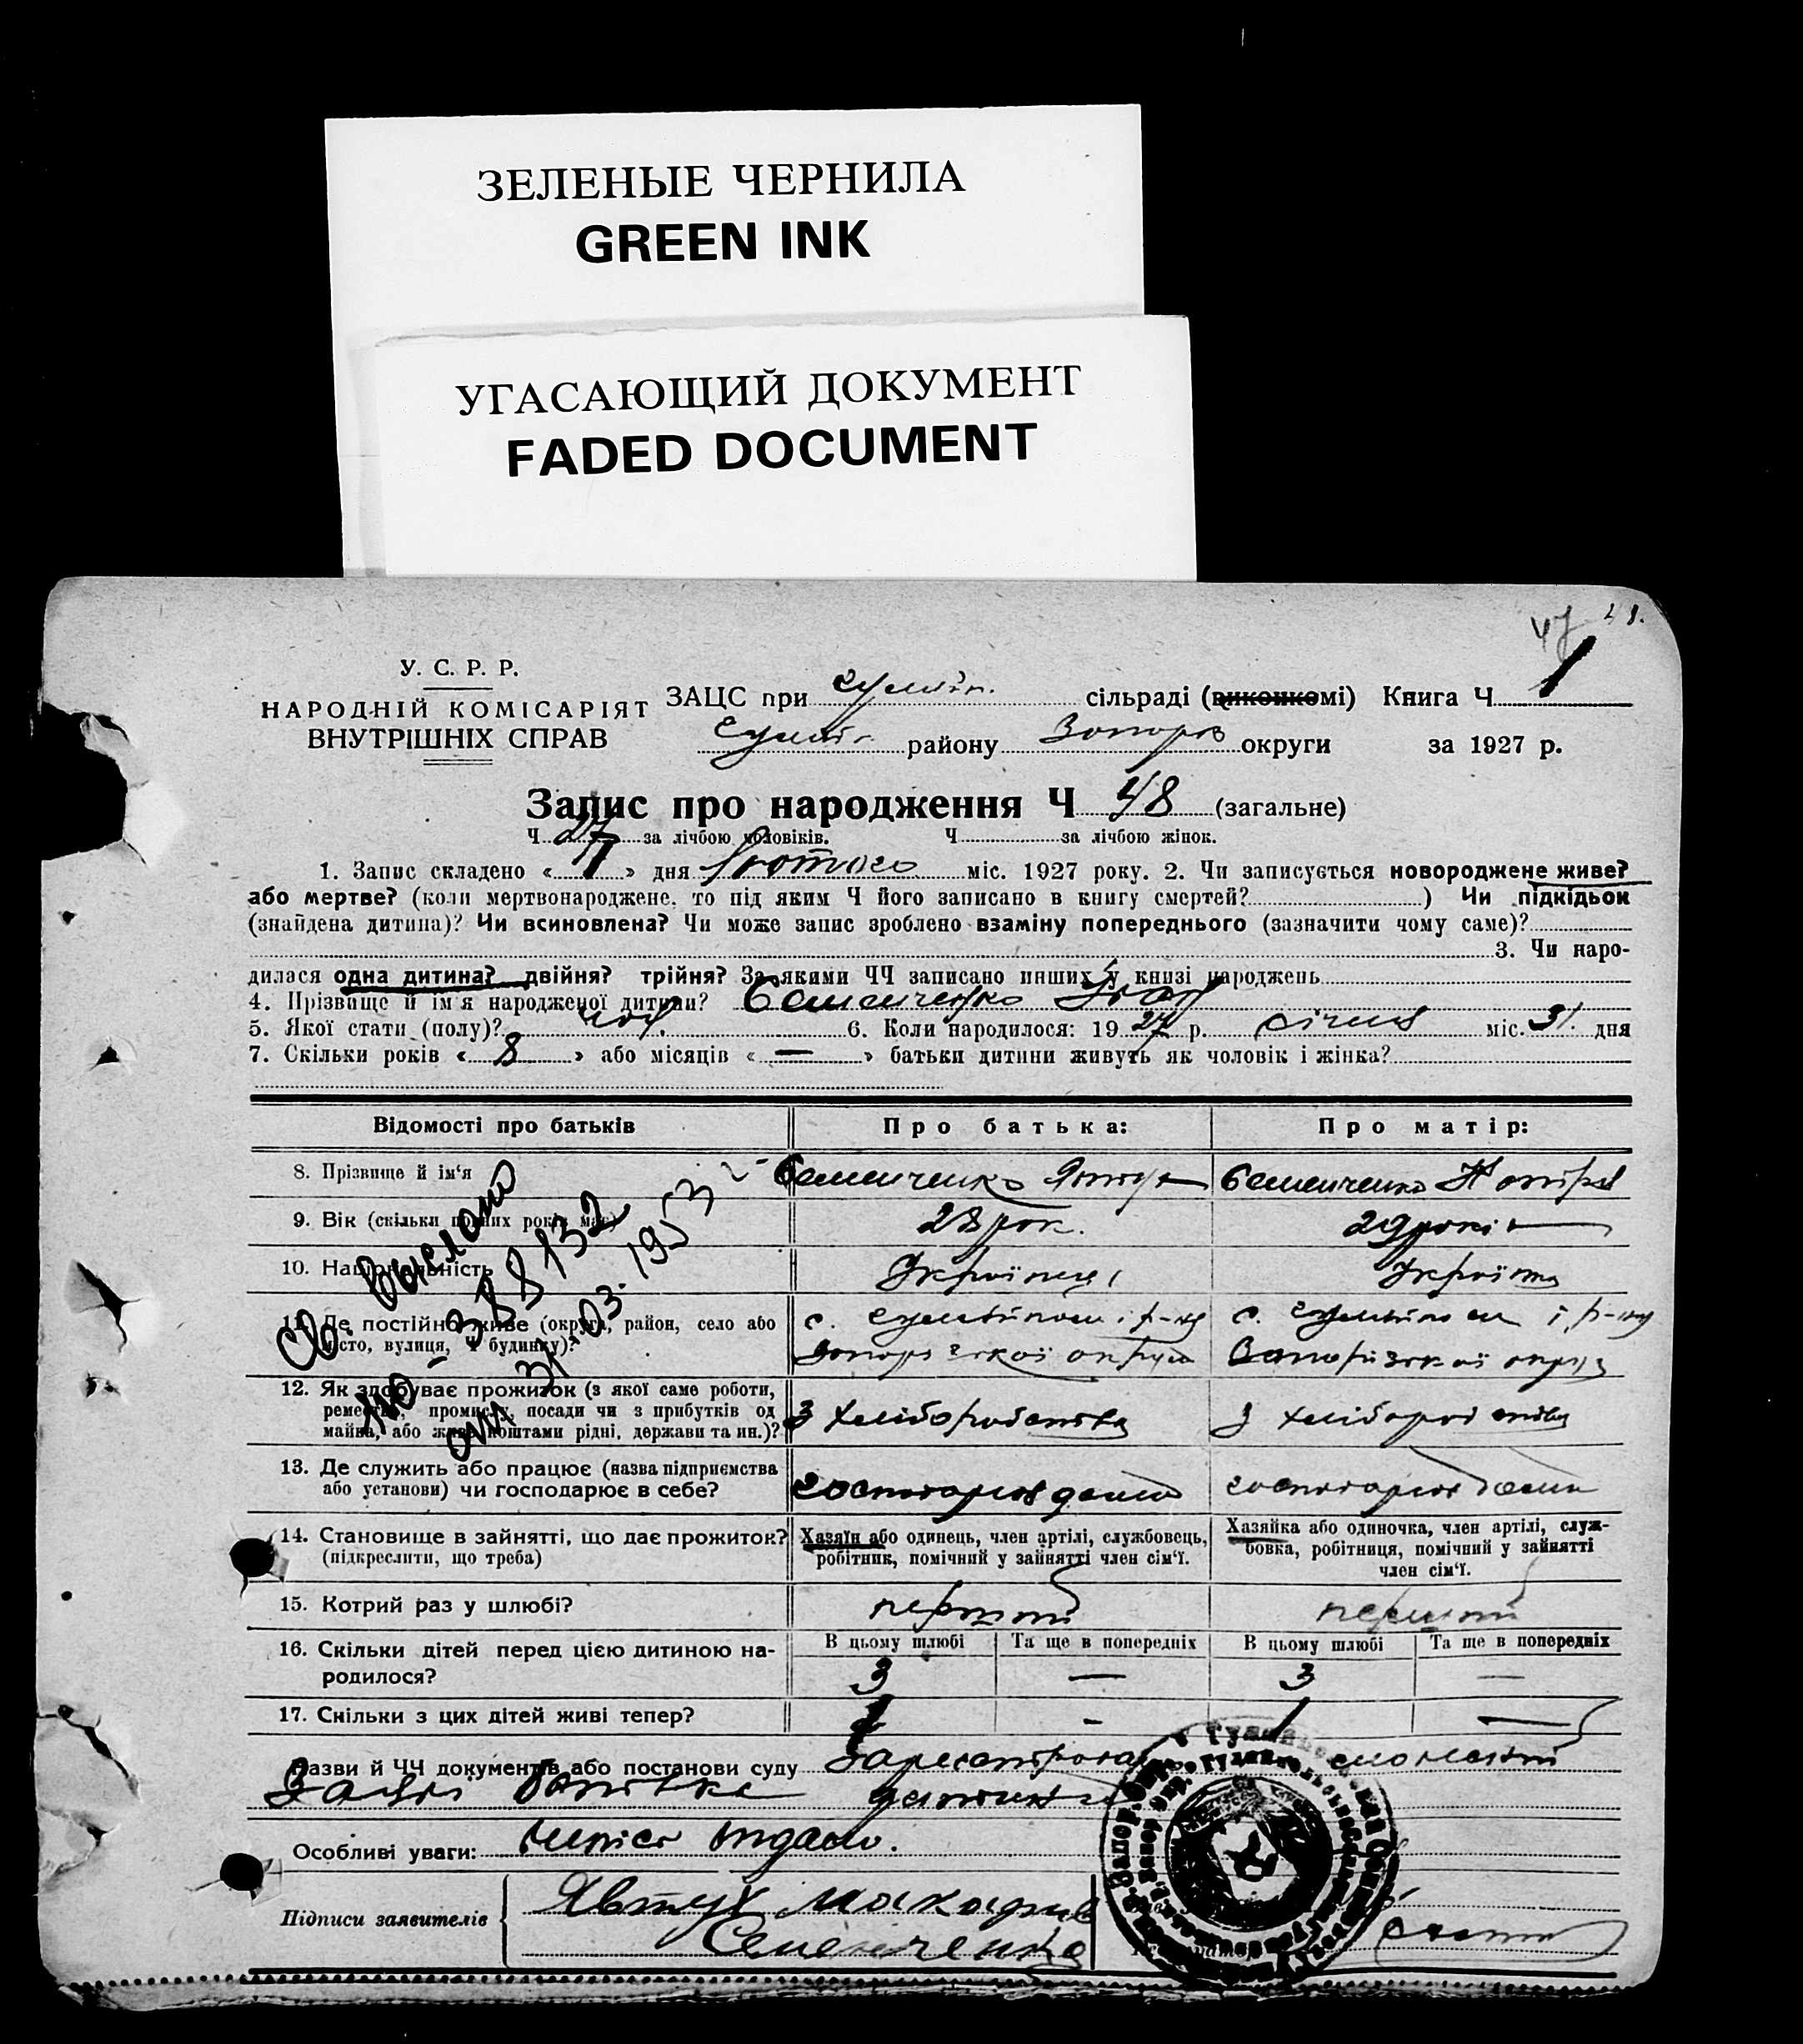 ЗЕЛЕНЫЕ ЧЕРНИЛА
GREEN INK
УГАСАЮЩИЙ ДОКУМЕНТ
FADED DOCUMENT
47
У. С. Р. Р.
НАРОДНІЙ КОМІСАРІЯТ
ВНУТРІШНІХ СПРАВ
ЗАЦС при сільраді (виконкомі) Книга Ч 1
району Запоріз округи за 1927 р.
Запис про народження Ч 48 (загальне)
Ч 27 за лічбою чоловіків. Ч за лічбою жінок.
1. Запис складено « 1 » дня Лютого міс. 1927 року. 2. Чи записується новороджене живе?
або мертве? (коли мертвонароджене, то під яким Ч його записано в книгу смертей? ) Чи підкідьок
(знайдена дитина)? Чи всиновлена? Чи може запис зроблено взаміну попереднього (зазначити чому саме)?
3. Чи наро-
дилася одна дитина? двійня? трійня? За якими ЧЧ записано инших у книзі народжень
4. Прізвище й ім'я народженої дитини? Семенченко Іван
5. Якої стати (полу)? чол. 6. Коли народилося: 19 27 р. січня міс. 31 дня
7. Скільки років « 8 » або місяців « — » батьки дитини живуть як чоловік і жінка?
Відомості про батьків Про батька: Про матір:
8. Прізвище й ім'я Семенченко Семенченко
9. Вік (скільки повних років має) 28 рок. 29 років
10. Національність Українець Українка
11. Де постійно живе (округа, район, село або
місто, вулиця, Ч будинку)?
с. і р-ну
Запорізької округи
с. і р-ну
Запорізької округи
12. Як здобуває прожиток (з якої саме роботи,
ремества, промислу, посади чи з прибутків од
майна, або живе коштами рідні, держави та ин.)?
З хліборобства
З хліборобства
13. Де служить або працює (назва підприємства
або установи) чи господарює в себе?
господарює дома
господарює дома
14. Становище в зайнятті, що дає прожиток?
(підкреслити, що треба)
Хазяїн або одинець, член артілі, службовець,
робітник, помічний у зайнятті член сім'ї.
Хазяйка або одиночка, член артілі, служ-
бовка, робітниця, помічний у зайнятті
член сім'ї.
15. Котрий раз у шлюбі? перший перший
16. Скільки дітей перед цією дитиною на-
родилося?
В цьому шлюбі Та ще в попередніх В цьому шлюбі Та ще в попередніх
3 — 3 —
17. Скільки з цих дітей живі тепер? 1 - 1 —
Св. выслано
№ 388132
от 31-03-1953
Назви й ЧЧ документів або постанови суду
Особливі уваги: видано.
Підписи заявителів Явтух
Семенченко